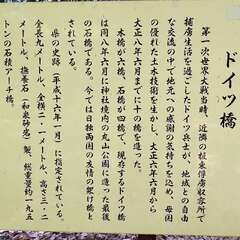 ドイツ橋
第一次世界大戦当時、近隣の板東俘虜収容所で
捕虜生活を過ごしたドイツ兵士が、地域との自由
な交流の中で地元への感謝の気持ちを込め、母国
の優れた土木技術を生かし、大正六年六月から
大正八年六月までに十の橋を造った。
木橋が六橋、石橋が四橋で、現存するドイツ橋
は同八年六月に神社境内の丸山公園に造った最後
の石橋である。今では日独両国の友情の架け橋と
されている。
県の史跡（平成十六年一月）に指定されている。
全長九・八メートル、全横二・一メートル、高さ三・二
メートル、撫養石（和泉砂岩）製、総重量約一九五
トンの石積アーチ橋。